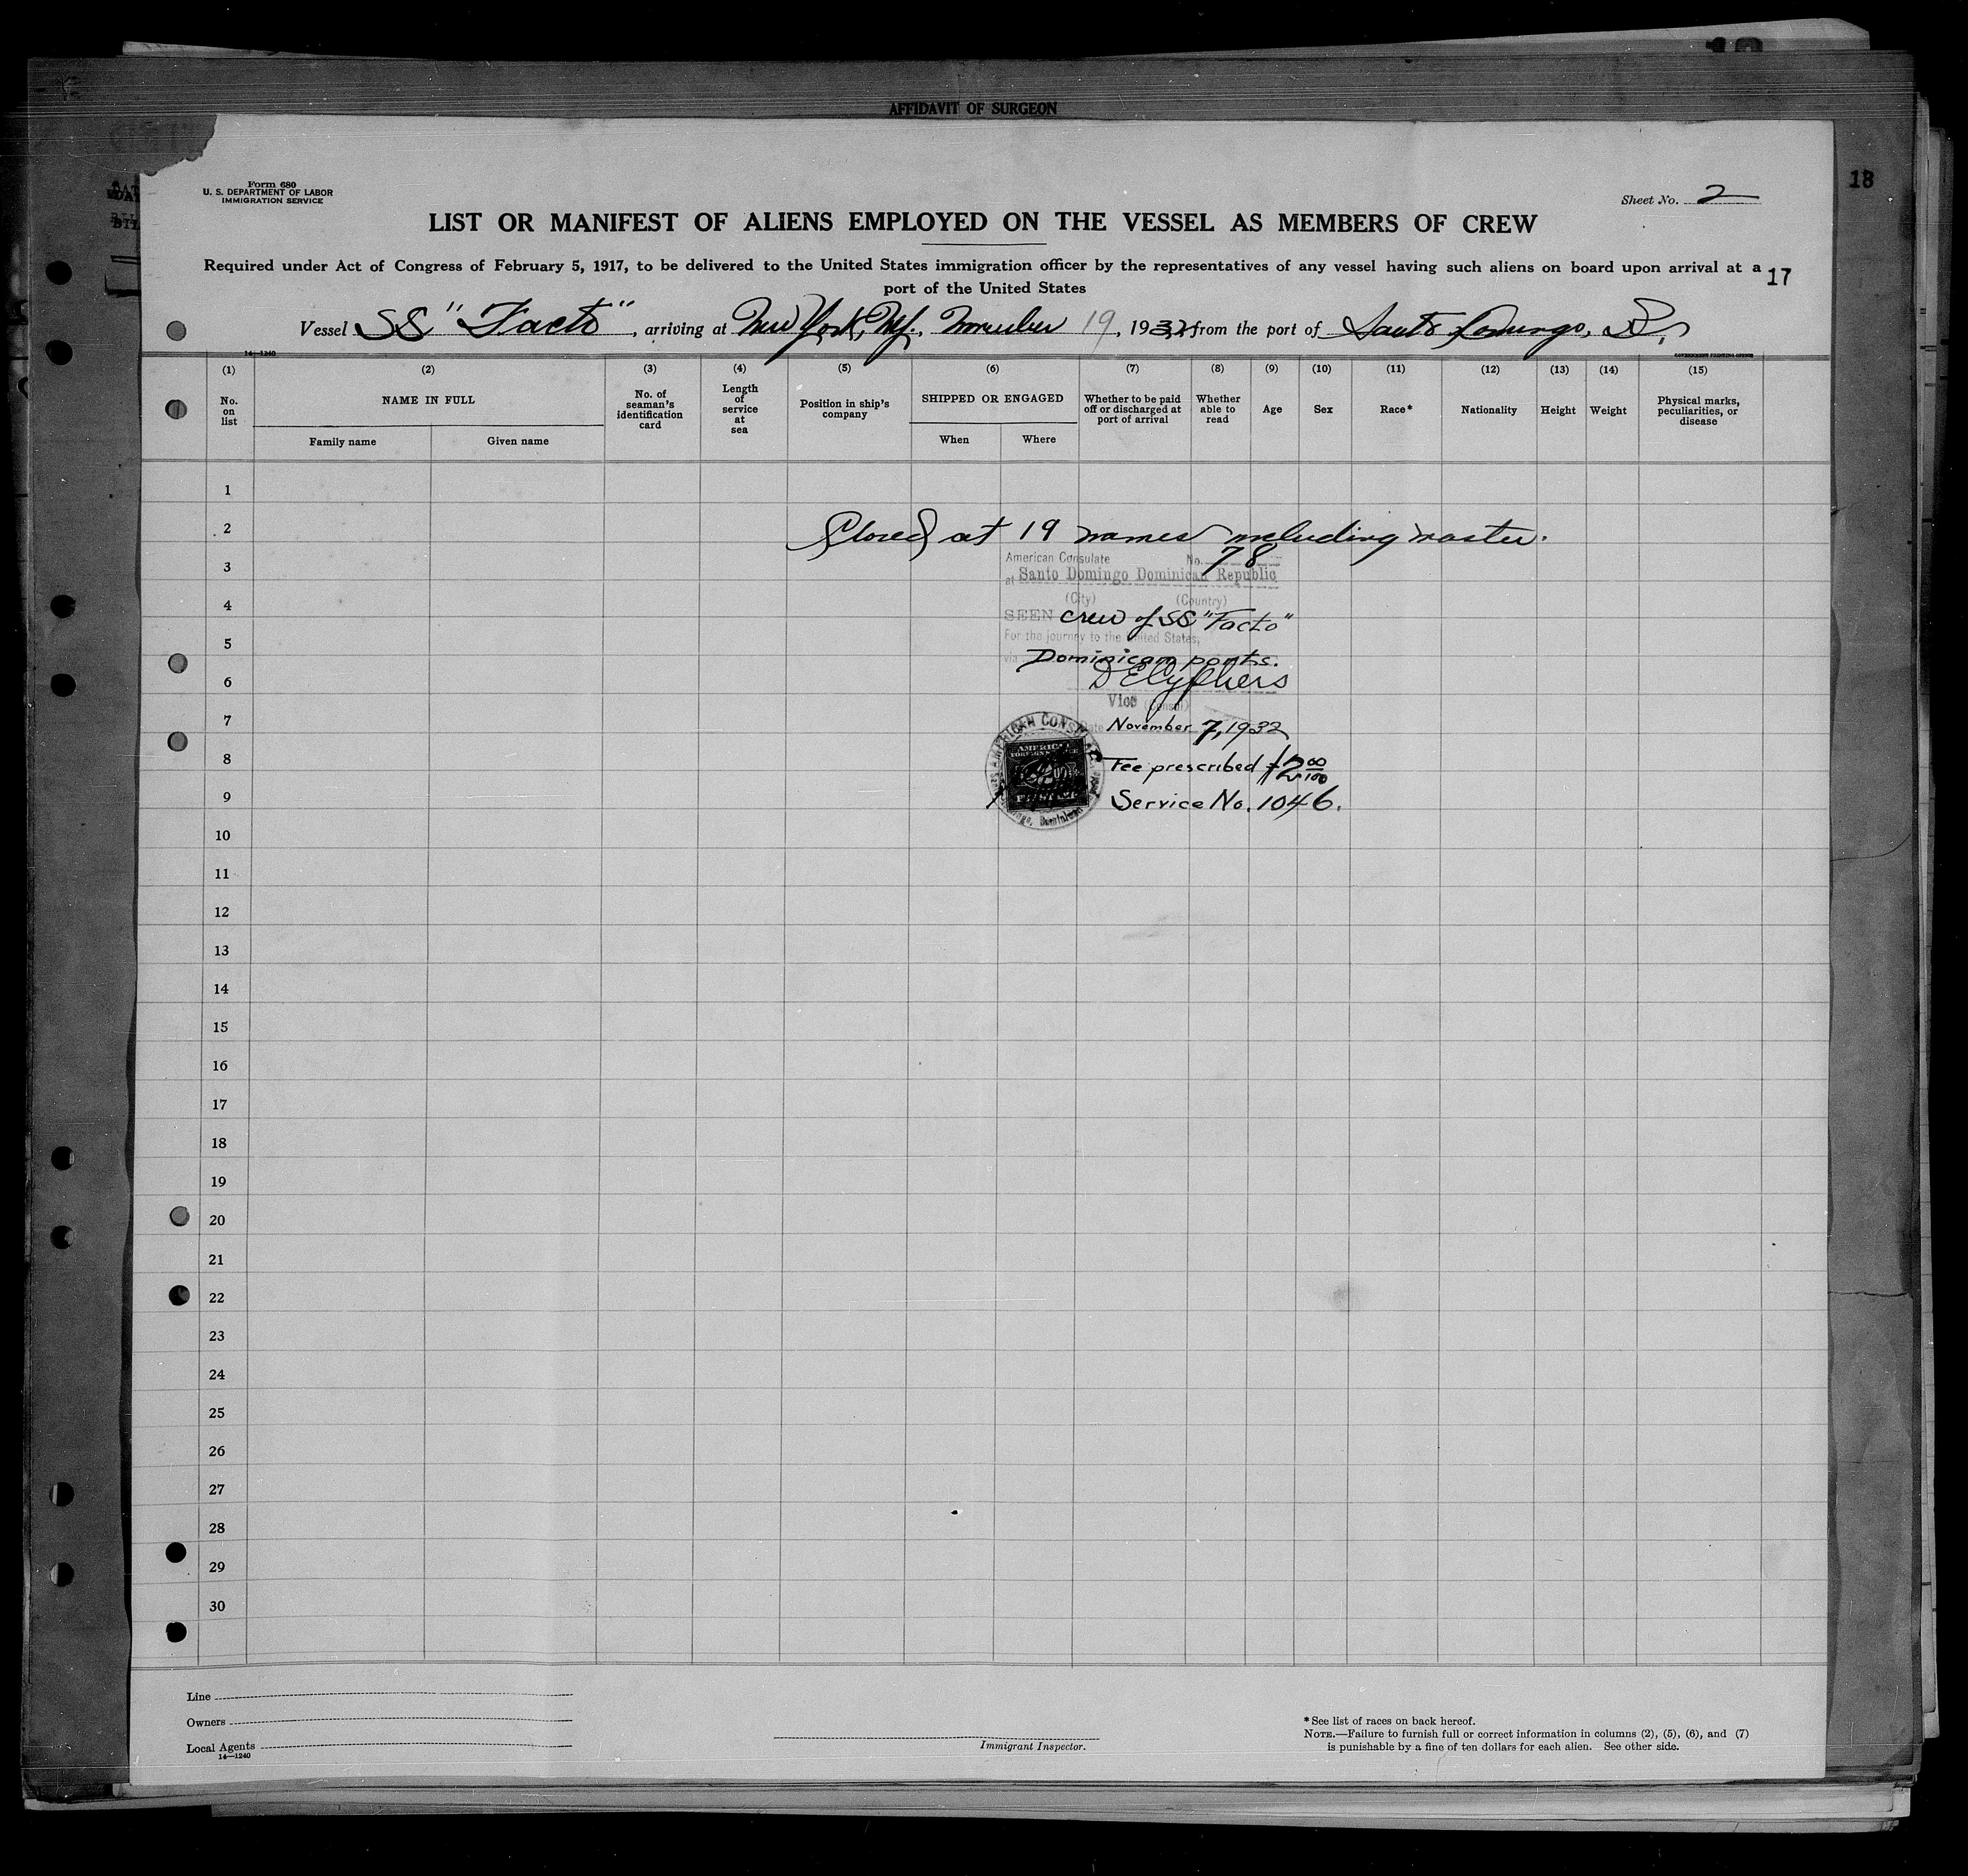 AFFIDAVIT OF SURGEON
18
Form 680
U. S. DEPARTMENT OF LABOR
IMMIGRATION SERVICE
Sheet No. 2
LIST OR MANIFEST OF ALIENS EMPLOYED ON THE VESSEL AS MEMBERS OF CREW
Required under Act of Congress of February 5, 1917, to be delivered to the United States immigration officer by the representatives of any vessel having such aliens on board upon arrival at a
port of the United States
17
Vessel SS "Facto", arriving at New York, NY., November 19, 1932 from the port of Santo Domingo,
14—1240
GOVERNMENT PRINTING OFFICE
(1) (2) (3) (4) (5) (6) (7) (8) (9) (10) (11) (12) (13) (14) (15)
No. on list
NAME IN FULL
Family name
Given name
No. of seaman's identification card
Length of service at sea
Position in ship's company
SHIPPED OR ENGAGED
When
Where
Whether to be paid off or discharged at port of arrival
Whether able to read
Age
Sex
Race*
Nationality
Height
Weight
Physical marks, peculiarities, or disease
1
2
Closed at 19 names including master.
3
American Consulate No. 78
at Santo Domingo Dominican Republic
(City) (Country)
4
SEEN crew of SS "Facto"
For the journey to the United States,
5
via Dominican ports.
6
Vice (Consul)
7
Date November 7, 1932
AMERICAN
8
Fee prescribed $2 00/100
9
Service No. 1046.
10
11
12
13
14
15
16
17
18
19
20
21
22
23
24
25
26
27
28
29
30
Line
Owners
Local Agents
14—1240
Immigrant Inspector.
*See list of races on back hereof.
NOTE.—Failure to furnish full or correct information in columns (2), (5), (6), and (7)
is punishable by a fine of ten dollars for each alien. See other side.